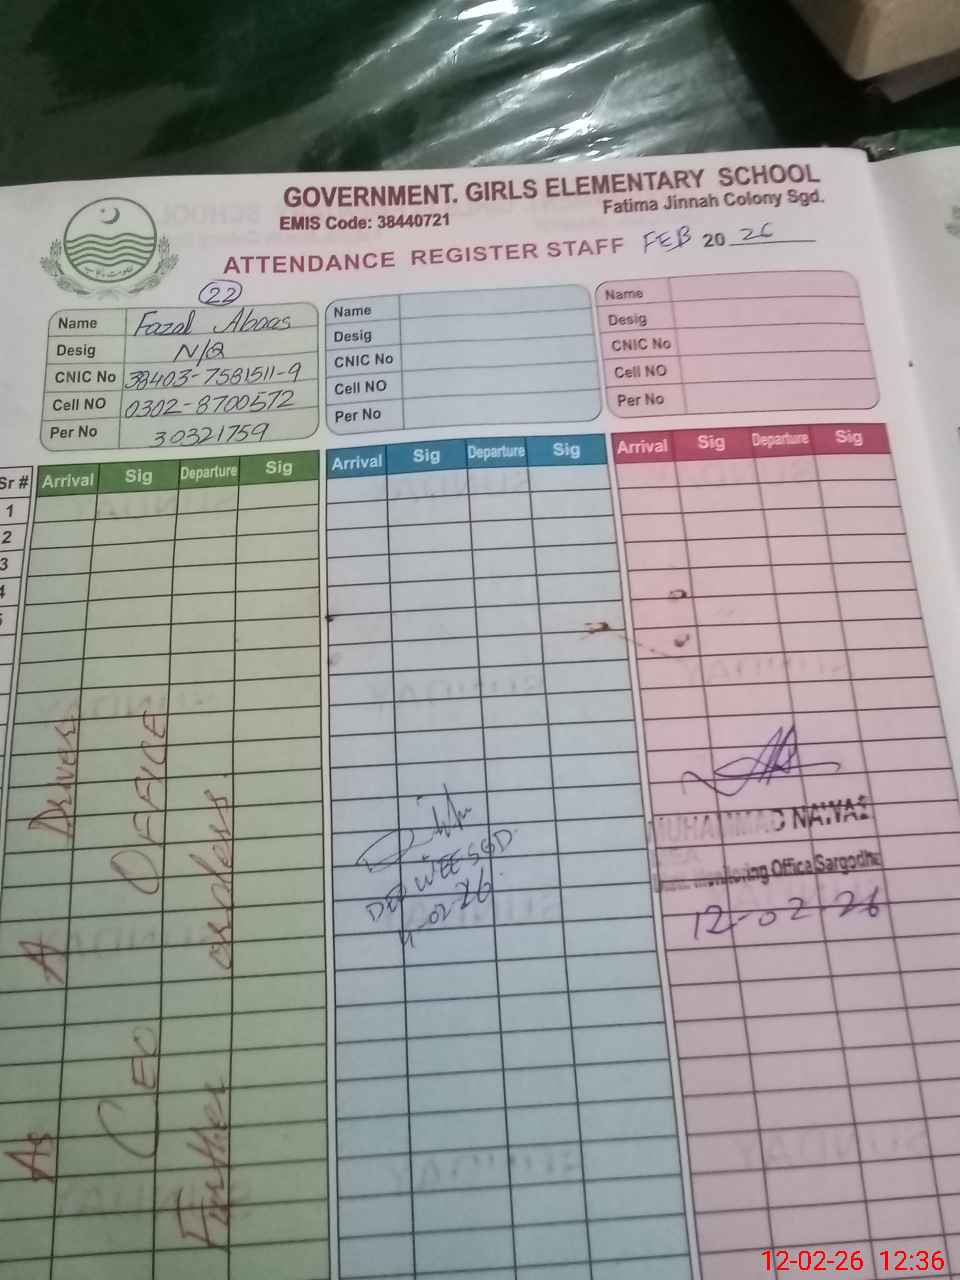 GOVERNMENT. GIRLS ELEMENTARY SCHOOL
EMIS Code: 38440721
Fatima Jinnah Colony Sgd.
ATTENDANCE REGISTER STAFF FEB 20 26
22
Name Fazal Abbas
Desig N/Q
CNIC No 38403-7581511-9
Cell NO 0302-8700572
Per No 30321759
Name
Desig
CNIC No
Cell NO
Per No
Name
Desig
CNIC No
Cell NO
Per No
Sr # Arrival Sig Departure Sig Arrival Sig Departure Sig Arrival Sig Departure Sig
1
2
3
4
5
As A Driver
CEO OFFICE
Further orders.
WEE SGD
11-02-26
MUHAMMAD NAWAZ
Monitoring Office Sargodha
12-02-26
12-02-26 12:36